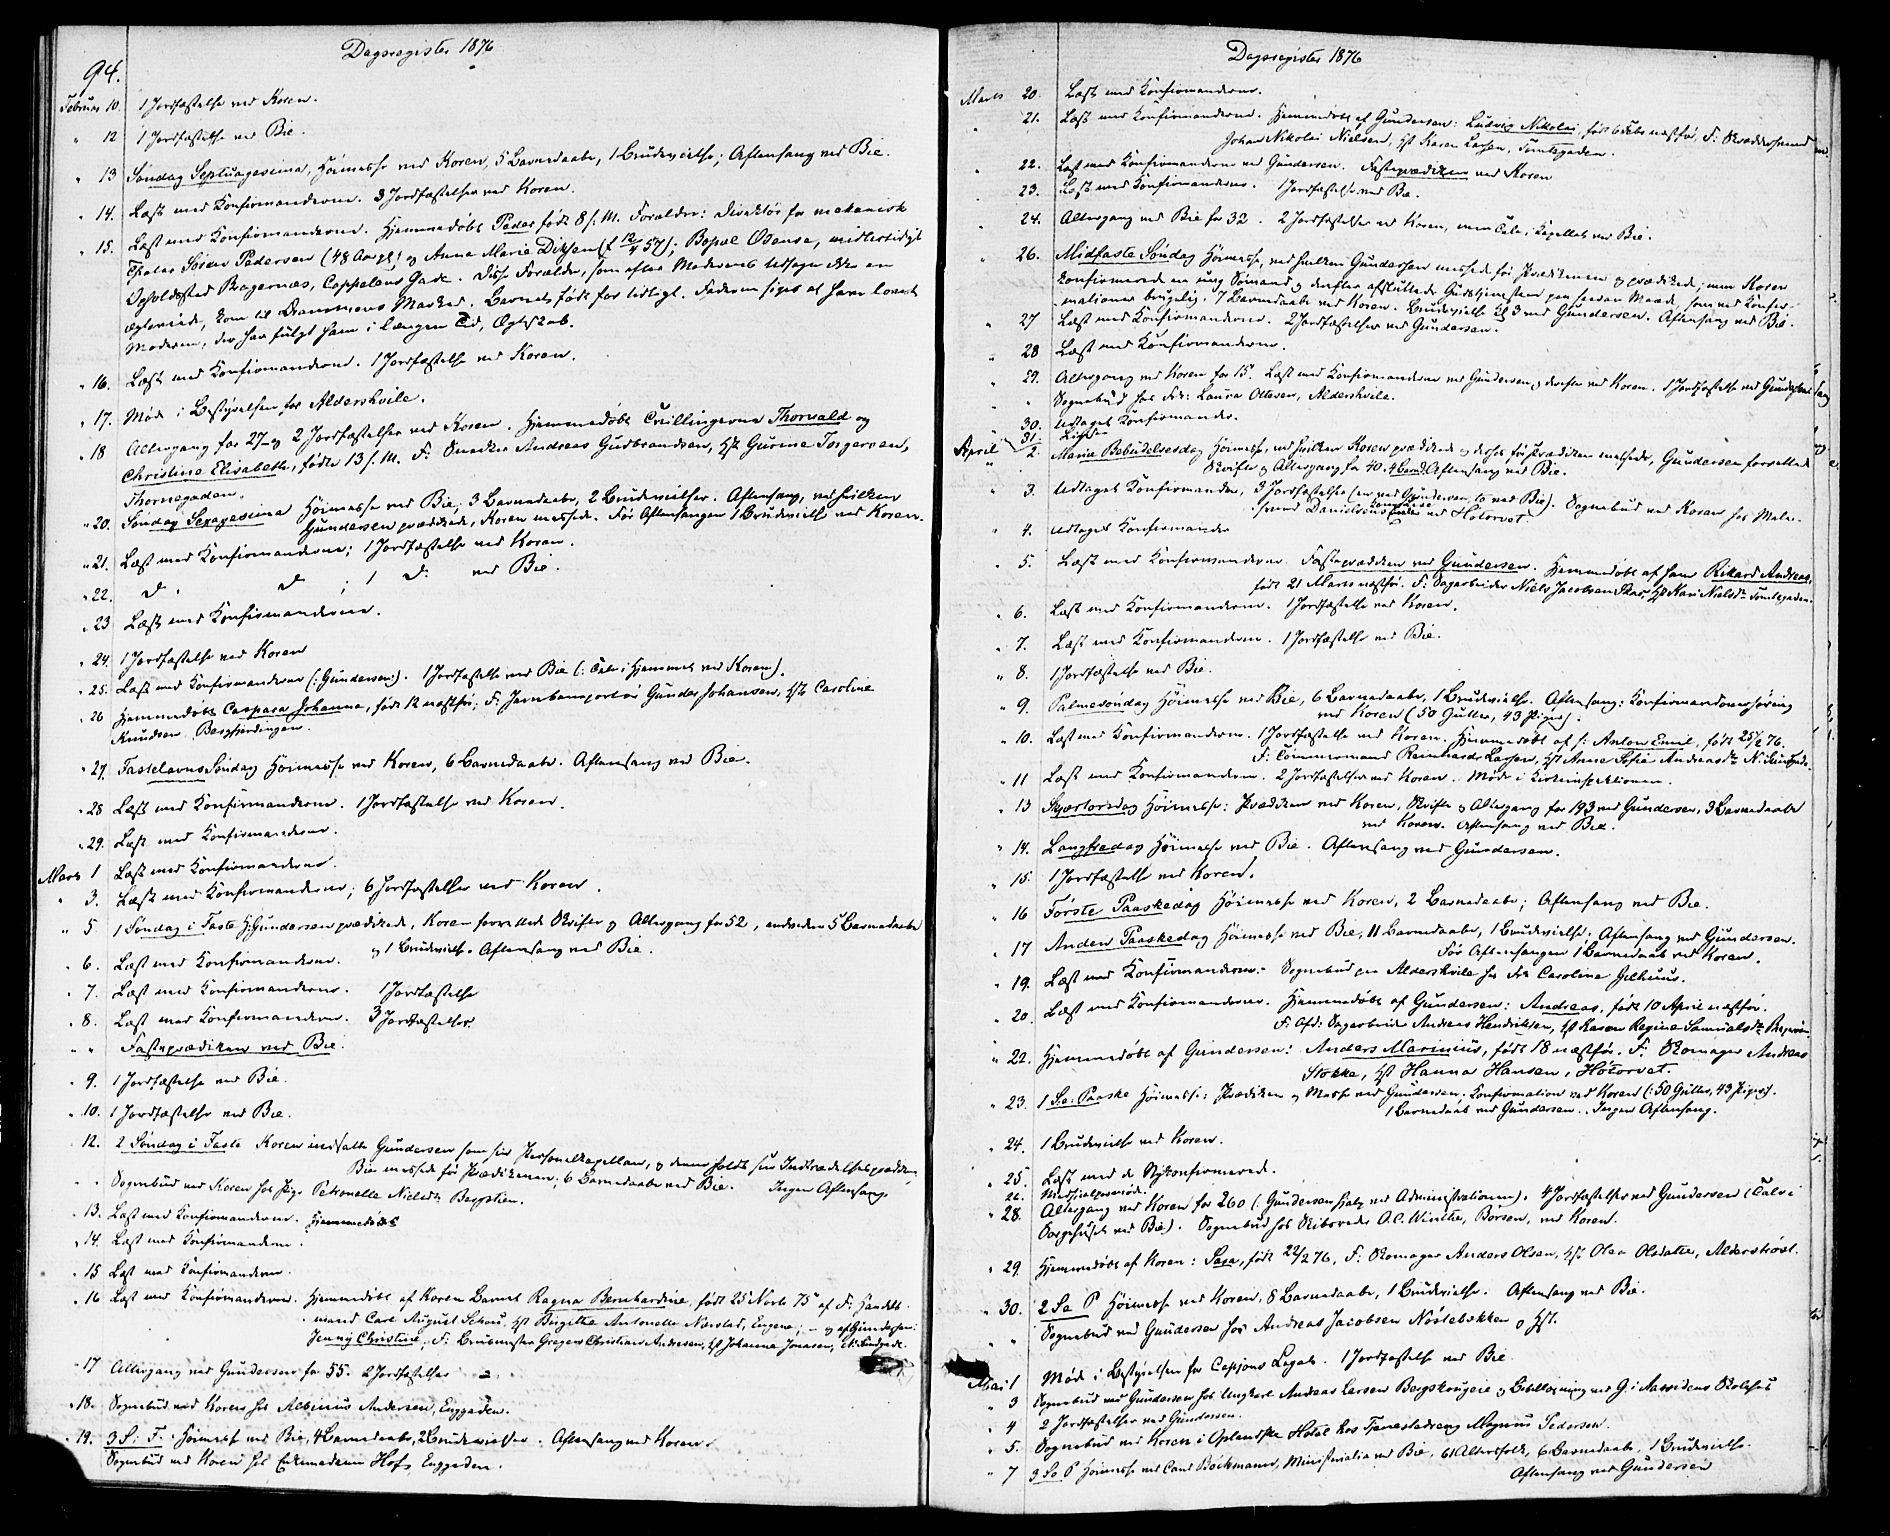 Dagsregister 1876
94.
Februar 10. 1 Jordfæstelse ved Koren.
" 12 1 Jordfæstelse ved Bie.
" 13 Søndag Septuagesima, Høimesse ved Koren, 5 Barnedaabe, 1 Brudevielse; Aftensang ved Bie.
" 14. Læst med Konfirmanderne. 3 Jordfæstelser ved Koren.
" 15. Læst med Konfirmanderne. Hjemmedøbt Peder født 8 f. M. Forældre: Direktør for mekanisk
Theater Søren Pedersen (48 Aar gl.) og Anne Marie Ditsen (f 12/4 57); Bopæl Odense, midlertidigt
Opholdssted Bragernæs, Cappelens Gade. Disse Forældre, som efter Moderens Udsagn ikke ere
ægteviede, kom til Drammens Marked. Barnet født for tidligt. Faderen siges at have lovet
Moderen, der har fulgt ham i længere Tid, Ægteskab.
" 16. Læst med Konfirmanderne. 1 Jordfæstelse ved Koren.
" 17. Møde i Bestyrelsen for Aldershvile.
" 18 Altergang for 27 og 2 Jordfæstelser ved Koren. Hjemmedøbt Tvillingerne Thorvald og
Christine Elisabeth, fødte 13 f. M. F: Snedker Andreas Gudbrandsen, Hst Gurine Torgersen,
Thornegaden.
" 20. Søndag Sexagesima Høimesse ved Bie, 3 Barnedaabe, 2 Brudevielser. Aftensang, ved hvilken
Gundersen prædikede, Koren messede. Før Aftensangen 1 Brudevielse ved Koren.
" 21. Læst med Konfirmanderne; 1 Jordfæstelse ved Koren.
" 22. D: D: ; 1 D: ved Bie.
" 23 Læst med Konfirmanderne.
" 24. 1 Jordfæstelse ved Koren
" 25. Læst med Konfirmanderne (: Gundersen:). 1 Jordfæstelse ved Bie (: Tale i Hjemmet ved Koren).
" 26 Hjemmedøbt Caspara Johanna, født 12 næstfør; F: Jernbaneportør Gunder Johansen, Hst Caroline
Knudsen Bergfjerdingen.
" 27. Fastelavns Søndag Høimesse ved Koren, 6 Barnedaabe. Aftensang ved Bie.
" 28 Læst med Konfirmanderne. 1 Jordfæstelse ved Koren.
" 29. Læst med Konfirmanderne.
Marts 1 Læst med Konfirmanderne.
" 3. Læst med Konfirmanderne; 6 Jordfæstelser ved Koren.
" 5 1 Søndag i Faste H: Gundersen prædikede, Koren forrettede Skrifte og Altergang for 52, endvidere 5 Barnedaabe
og 1 Brudevielse. Aftensang ved Bie.
" 6. Læst med Konfirmanderne.
" 7. Læst med Konfirmanderne. 1 Jordfæstelse
" 8. Læst med Konfirmanderne. 3 Jordfæstelser
" " Fasteprædiken ved Bie.
" 9. 1 Jordfæstelse ved Bie.
" 10. 1 Jordfæstelse ved Bie.
12. 2 Søndag i Faste Koren indsatte Gundersen som sin Personelkapellan, og denne holdt sin Indtrædelsesprædiken
Bie messede før Prædikenen; 6 Barnedaabe ved Bie. Ingen Aftensang.
" " Sognebud ved Koren hos Pige Petronelle Nielsdr Bergstien.
" 13. Læst med Konfirmanderne. Hjemmedøbt
" 14. Læst med Konfirmanderne.
" 15 Læst med Konfirmanderne.
" 16 Læst med Konfirmanderne. Hjemmedøbt af Koren Barnet Ragna Bernhardine, født 25 Novb 75 af F: Handels-
mand Carl August Schou, Hst Birgitte Antonette Nærstad, Engene; og af Gundersen:
Jenny Christine, F: Brugsmester Gregers Christian Andresen, Hst Johanna Jonasen, N: Sundgade.
" 17 Altergang ved Gundersen for 55. 2 Jordfæstelser
" 18. Sognebud ved Koren hos Albinius Andersen, Enggaden.
" 19. 3 S: F: Høimesse ved Bie, 4 Barnedaabe, 2 Brudevielser. Aftensang ved Koren.
Sognebud ved Koren hos Enkemadam Hofs, Enggaden.
Dagsregister 1876
Marts 20. Læst med Konfirmanderne.
21. Læst med Konfirmanderne. Hjemmedøbt af Gundersen: Ludvig Nikolai, født 6 Febr næstfør, F: Skræddersvend
Johan Nikolai Nielsen, Hst Karen Larsen, Tomtegaden.
" 22. Læst med Konfirmanderne ved Gundersen. Fasteprædiken ved Koren
23. Læst med Konfirmanderne. 1 Jordfæstelse ved Bie.
24. Altergang ved Bie for 32. 2 Jordfæstelser ved Koren, men Tale i Kapellet ved Bie.
" 26. Midfaste Søndag Høimesse, ved hvilken Gundersen messede før Prædikenen og prædikede; men Koren
konfirmerede en ung Sømand og derefter afsluttede Gudstjenesten paa saadan Maade, som ved Konfir-
mationer brugelig. 7 Barnedaabe ved Koren. Brudevielse til 3 ved Gundersen. Aftensang ved Bie.
" 27 Læst med Konfirmanderne. 2 Jordfæstelser ved Gundersen.
" 28 Læst med Konfirmanderne.
" 29. Altergang ved Koren for 15. Læst med Konfirmanderne ved Gundersen og derefter ved Koren. 1 Jordfæstelse ved Gundersen
" Sognebud hos Frk: Laura Ottesen, Aldershvile.
30. Udtaget Konfirmander.
31. Ligesaa
April 2. Mariæ Bebudelsesdag Høimesse, ved hvilken Koren prædikede og derhos før Prædiken messede, Gundersen forrettede
Skrifte og Altergang for 40. 4 Barnd. Aftensang ved Bie.
" 3. Udtaget Konfirmander, 3 Jordfæstelser (en ved Gundersen, to ved Bie). Sognebud ved Koren hos Maler-
svend Danielsens Enke ved Hotorvet.
" 4. Udtaget Konfirmander
" 5. Læst med Konfirmanderne. Fasteprædiken ved Gundersen. Hjemmedøbt af ham Rikard Andreas,
født 21 Marts næstfør. F: Sagarbeider Niels Jacobsen Skar, Hst Kari Nielsdr Tomtegaden.
" 6. Læst med Konfirmanderne. 1 Jordfæstelse ved Koren.
" 7. Læst med Konfirmanderne. 1 Jordfæstelse ved Bie.
" 8. 1 Jordfæstelse ved Bie.
" 9. Palmesøndag Høimesse ved Bie, 6 Barnedaabe, 1 Brudevielse. Aftensang: Konfirmandoverhøring
ved Koren (50 Gutter, 43 Piger).
" 10. Læst med Konfirmanderne. 1 Jordfæstelse ved Koren. Hjemmedøbt af s: Anton Emil, født 25/2 76.
F: Tømmermand Reinhardt Larsen, Hst Anne Sofie Andreasdr N: Sundgade.
" 11 Læst med Konfirmanderne. 2 Jordfæstelser ved Koren. Møde i Kirkeinspektionen.
" 13 Skjærtorsdag Høimesse: Prædiken ved Koren, Skrifte og Altergang for 193 ved Gundersen, 3 Barnedaabe
ved Koren. Aftensang ved Bie.
" 14. Langfredag Høimesse ved Bie. Aftensang ved Gundersen.
" 15. 1 Jordfæstelse ved Koren.
" 16 Første Paaskedag Høimesse ved Koren, 2 Barnedaabe; Aftensang ved Bie.
" 17 Anden Paaskedag Høimesse ved Bie, 11 Barnedaabe, 1 Brudevielse. Aftensang ved Gundersen.
Før Aftensangen 1 Barnedaab ved Koren.
" 19. Læst med Konfirmanderne. Sognebud paa Aldershvile hos Frk Caroline Gilhuus.
" 20. Læst med Konfirmanderne. Hjemmedøbt af Gundersen: Andreas, født 10 April næstfør.
F: Afd: Sagarbeider Andreas Hendriksen, Hst Karen Regine Samuelsdr Bragernæs
" 22. Hjemmedøbt af Gundersen: Anders Marinius, født 18 næstfør. F: Skomager Andreas
Stokke, Hst Hanna Hansen, Høtorvet.
" 23. 1 S. e: Paaske Høimesse: Prædiken og Messe ved Gundersen. Konfirmation ved Koren (: 50 Gutter, 43 Piger).
1 Barnedaab ved Gundersen. Ingen Aftensang.
" 24. 1 Brudevielse ved Koren.
" 25. Læst med de Nykonfirmerede.
26.
" 28. Altergang ved Koren for 260 (: Gundersen hjalp ved Administrationen). 4 Jordfæstelser ved Gundersen (Tale i
Sørgehuset ved Bie). Sognebud hos Skibsreder O.C. Winther, Børsen, ved Koren.
" 29. Hjemmedøbt af Koren: Sara, født 22/2 76, F: Skomager Anders Olsen, Hst Olea Olsdatter, Alderstrøst.
" 30. 2 S e P Høimesse ved Koren, 8 Barnedaabe, 1 Brudevielse. Aftensang ved Bie.
" Sognebud ved Gundersen hos Andreas Jacobsen Nøstebakken og Hst.
Mai 1 Møde i Bestyrelsen for Cappens Legat. 1 Jordfæstelse ved Bie.
" 3 Sognebud ved Gundersen hos Ungkarl Andreas Larsen Bergskougeie og Bibellæsning ved G. i Aassidens Skolehus
" 4 2 Jordfæstelser ved Gundersen.
" 5. Sognebud ved Koren i Oplandske Hotel hos Tjenestedreng Magnus Pedersen.
" 7 3 S e P Høimesse ved Cand Bøckmann, Ministerialia ved Bie, 61 Altersfolk, 6 Barnedaabe, 1 Brudevielse.
Aftensang ved Gundersen